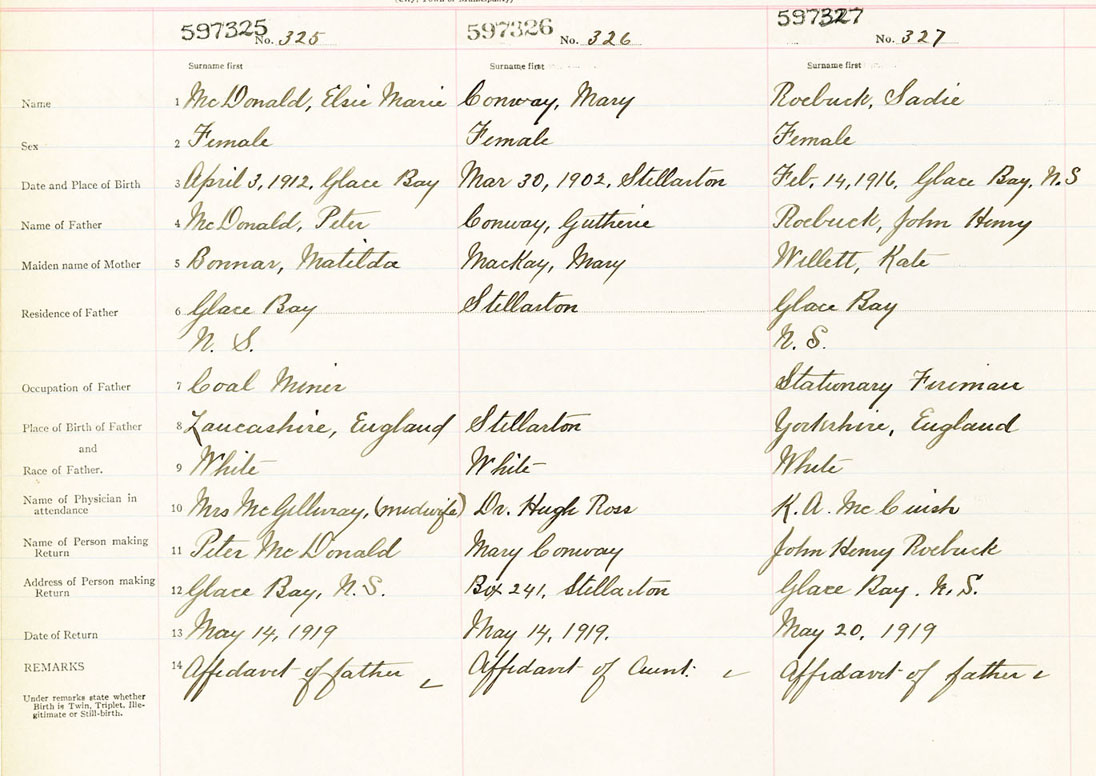 (City, Town or Municipality)
597325 No. 325 597326 No. 326 597327 No. 327
Surname first Surname first Surname first
Name 1 McDonald, Elsie Marie Conway, Mary Roebuck, Sadie
Sex 2 Female Female Female
Date and Place of Birth 3 April 3, 1912, Glace Bay Mar 30, 1902, Stellarton Feb. 14, 1916, Glace Bay, N.S
Name of Father 4 McDonald, Peter Conway, Gutherie Roebuck, John Henry
Maiden name of Mother 5 Bonnar, Matilda MacKay, Mary Willett, Kate
Residence of Father 6 Glace Bay Stellarton Glace Bay
N. S. N. S.
Occupation of Father 7 Coal Miner Stationary Fireman
Place of Birth of Father 8 Lancashire, England Stellarton Yorkshire, England
and
Race of Father. 9 White White White
Name of Physician in
attendance 10 Mrs McGillivray, (midwife) Dr. Hugh Ross K. A. McCuish
Name of Person making
Return 11 Peter McDonald Mary Conway John Henry Roebuck
Address of Person making
Return 12 Glace Bay, N.S. Box 241, Stellarton Glace Bay. N.S.
Date of Return 13 May 14, 1919 May 14, 1919. May 20, 1919
REMARKS 14 Affidavit of father Affidavit of Aunt. Affidavit of father
Under remarks state whether
Birth is Twin, Triplet, Ille-
gitimate or Still-birth.